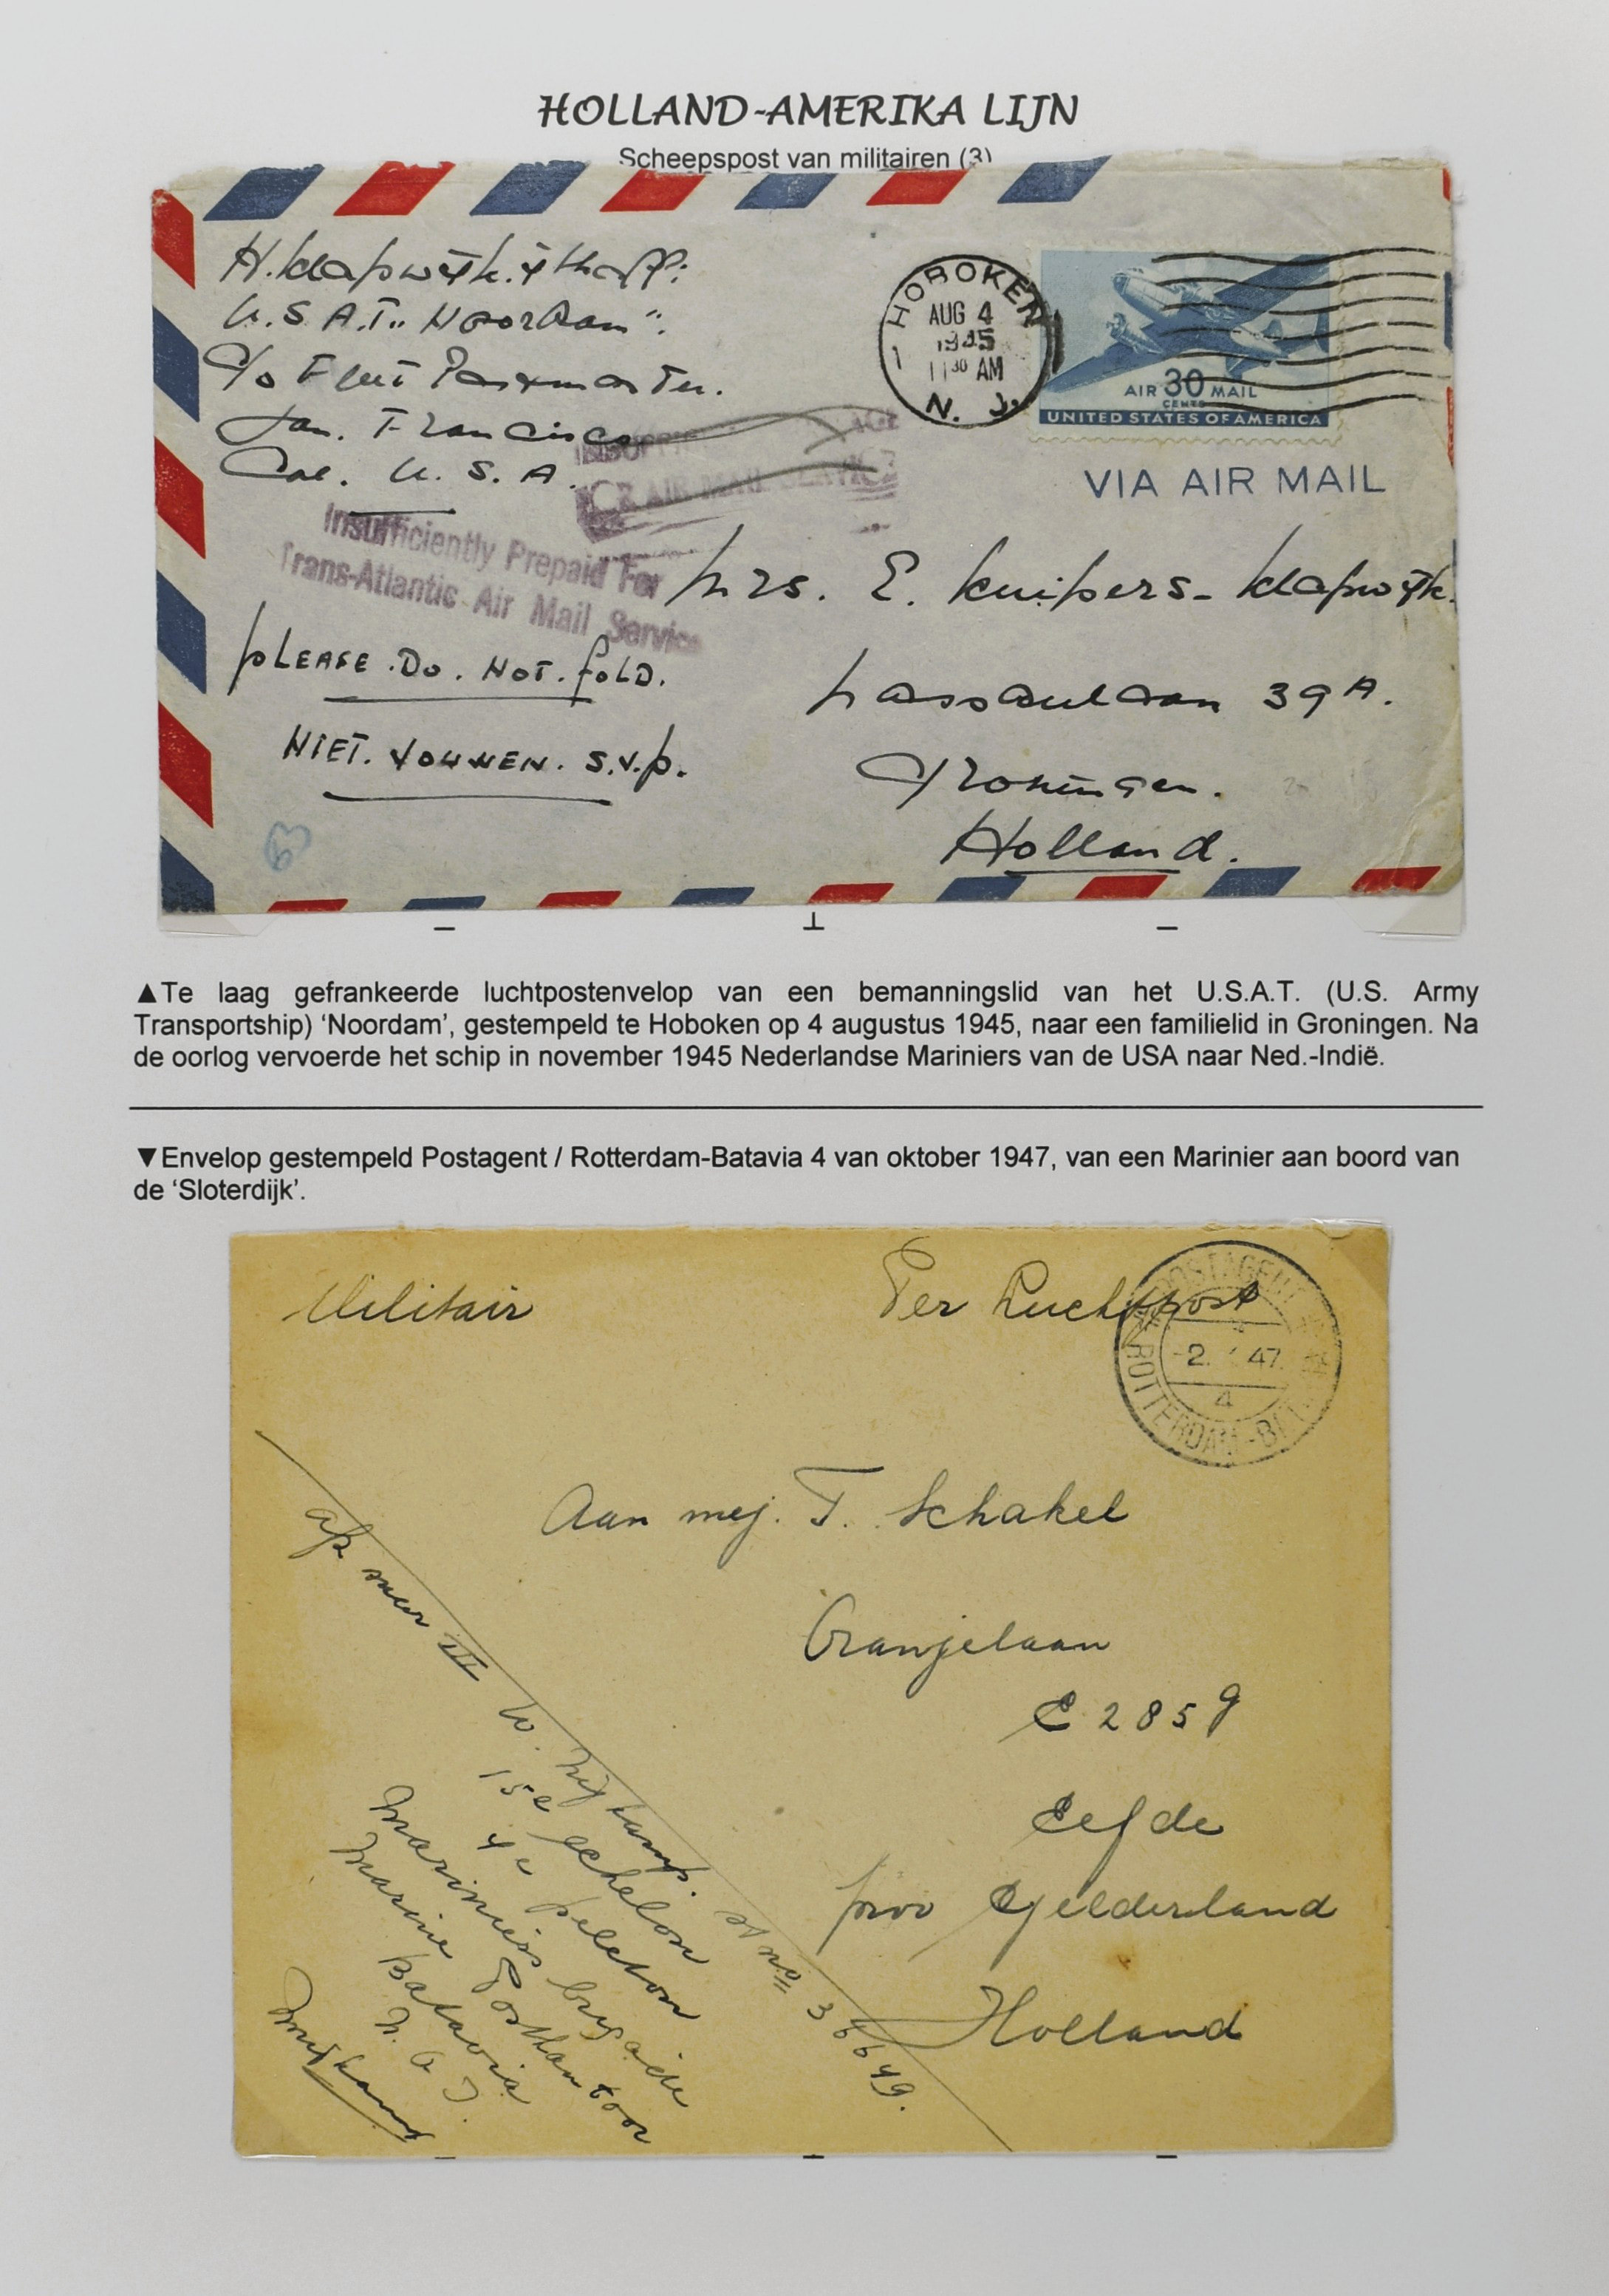 HOLLAND-AMERIKA LIJN
Scheepspost van militairen (3)
U.S.A.T. "Noordam".
c/o Fleet Postmaster.
San. Francisco
Cal. U. S. A.
HOBOKEN
AUG 4
1945
11 30 AM
N. J.
1
AIR 30 MAIL
CENTS
UNITED STATES OF AMERICA
VIA AIR MAIL
AIR MAIL SERVICE
Insufficiently Prepaid For
Trans-Atlantic Air Mail Service
Mrs. E. Kuipers-Klapwijk.
PLEASE. DO. NOT. FOLD.
39A.
NIET. VOUWEN. S.V.P.
Groningen.
Holland.
63
▲Te laag gefrankeerde luchtpostenvelop van een bemanningslid van het U.S.A.T. (U.S. Army
Transportship) ‘Noordam’, gestempeld te Hoboken op 4 augustus 1945, naar een familielid in Groningen. Na
de oorlog vervoerde het schip in november 1945 Nederlandse Mariniers van de USA naar Ned.-Indië.
▼Envelop gestempeld Postagent / Rotterdam-Batavia 4 van oktober 1947, van een Marinier aan boord van
de ‘Sloterdijk’.
Militair
Per Luchtpost
POSTAGENT
-2. 47.
4
ROTTERDAM-BAT
Aan mej. T. Schakel
Oranjelaan
E 285 g
Eefde
prov Gelderland
Holland
III W. Nijkamp. st no 36649.
15e echelon
4e peleton
Mariniers brigade
Marine Postkantoor
Batavia
N. O. I.